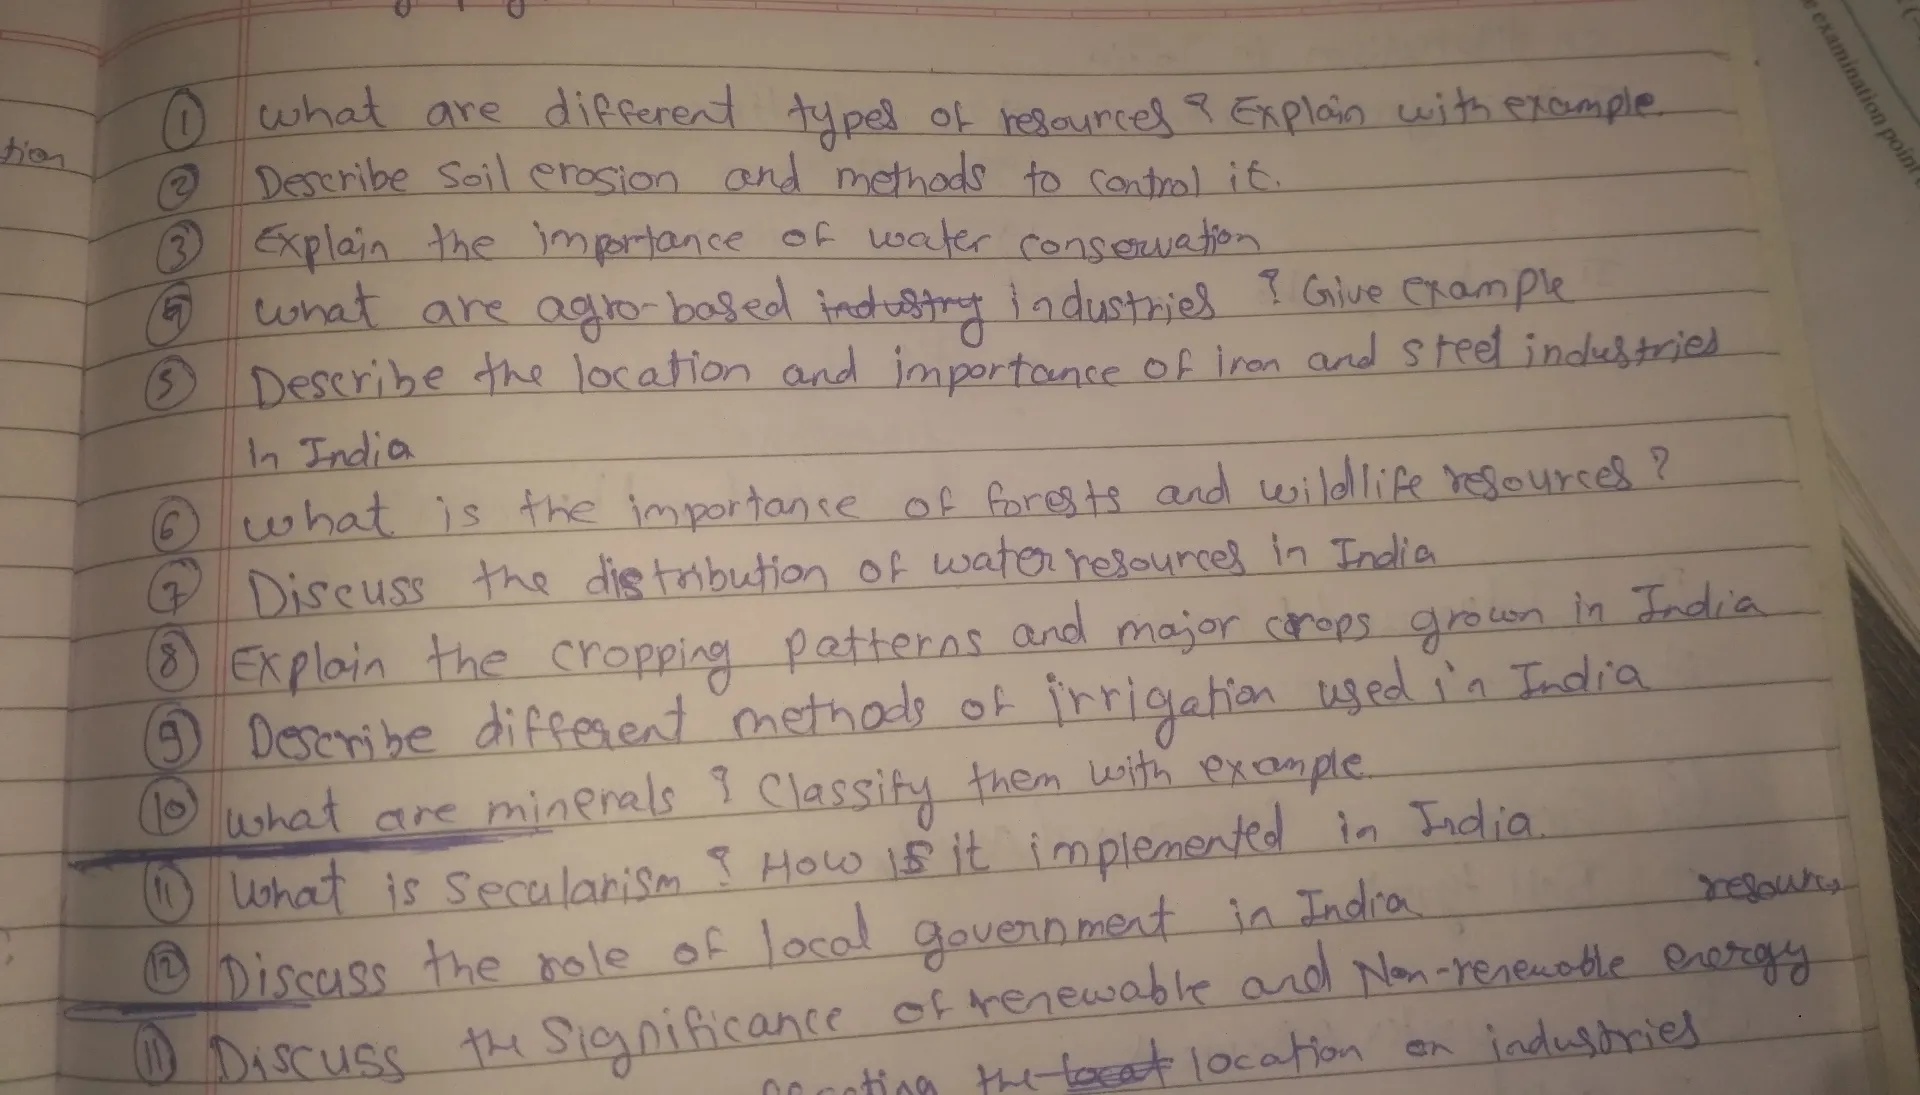 tion
① What are different types of resources? Explain with example.
② Describe soil erosion and methods to control it.
③ Explain the importance of water conservation
④ What are agro-based industry industries? Give example
⑤ Describe the location and importance of iron and steel industries
in India
⑥ What is the importance of forests and wildlife resources?
⑦ Discuss the distribution of water resources in India
⑧ Explain the cropping patterns and major crops grown in India
⑨ Describe different methods of irrigation used in India
⑩ What are minerals? Classify them with example.
⑪ What is Secularism? How is it implemented in India.
⑫ Discuss the role of local government in India
resources
⑪ Discuss the Significance of renewable and Non-renewable energy
the location on industries
examination point